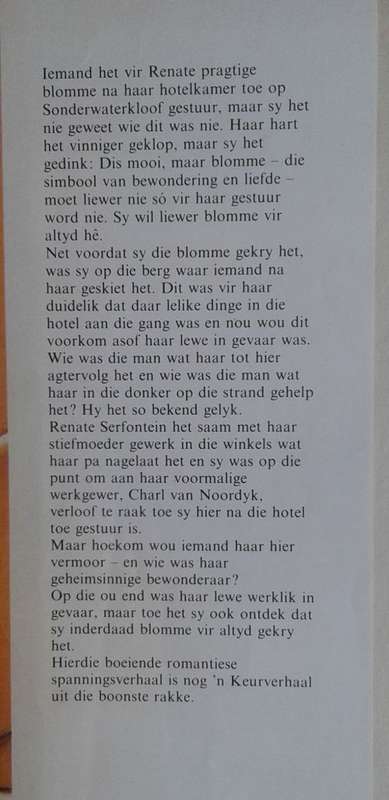 Iemand het vir Renate pragtige
blomme na haar hotelkamer toe op
Sonderwaterkloof gestuur, maar sy het
nie geweet wie dit was nie. Haar hart
het vinniger geklop, maar sy het
gedink: Dis mooi, maar blomme – die
simbool van bewondering en liefde –
moet liewer nie só vir haar gestuur
word nie. Sy wil liewer blomme vir
altyd hê.
Net voordat sy die blomme gekry het,
was sy op die berg waar iemand na
haar geskiet het. Dit was vir haar
duidelik dat daar lelike dinge in die
hotel aan die gang was en nou wou dit
voorkom asof haar lewe in gevaar was.
Wie was die man wat haar tot hier
agtervolg het en wie was die man wat
haar in die donker op die strand gehelp
het? Hy het so bekend gelyk.
Renate Serfontein het saam met haar
stiefmoeder gewerk in die winkels wat
haar pa nagelaat het en sy was op die
punt om aan haar voormalige
werkgewer, Charl van Noordyk,
verloof te raak toe sy hier na die hotel
toe gestuur is.
Maar hoekom wou iemand haar hier
vermoor – en wie was haar
geheimsinnige bewonderaar?
Op die ou end was haar lewe werklik in
gevaar, maar toe het sy ook ontdek dat
sy inderdaad blomme vir altyd gekry
het.
Hierdie boeiende romantiese
spanningsverhaal is nog 'n Keurverhaal
uit die boonste rakke.